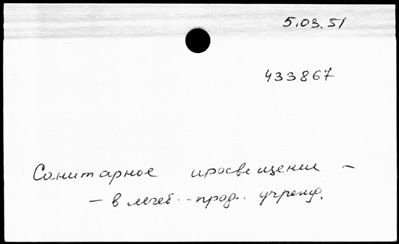 5.03.51
433867
Санитарное просвещении –
– в лечеб. - проф. учрежд.